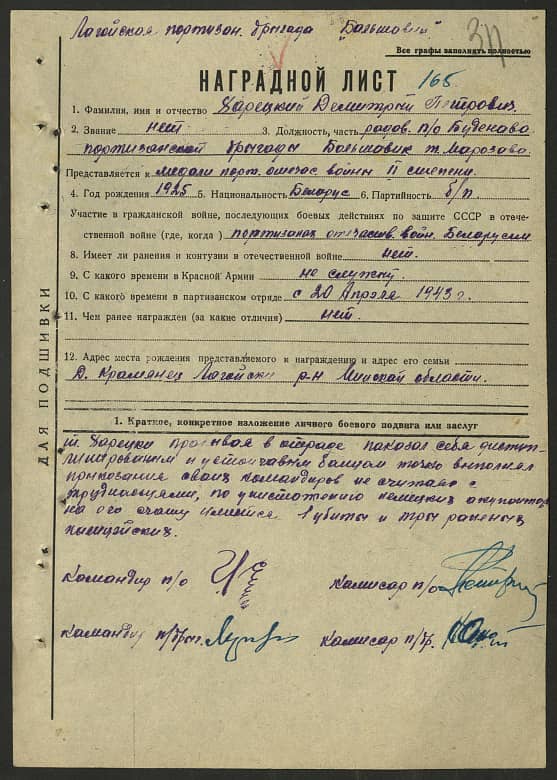 Лагойская портизан. бригада "Большавик"
Все графы заполнять полностью
НАГРАДНОЙ ЛИСТ 165
1. Фамилия, имя и отчество Харецкий Демитрий Петрович
2. Звание нет 3. Должность, часть радов. п/о Буденова
портизанской бригады Большовик т. Марозава
Представляется к медали порт. отечас войны II степени.
4. Год рождения 1925 5. Национальность Беларус 6. Партийность б/п.
Участие в гражданской войне, последующих боевых действиях по защите СССР в отече-
ственной войне (где, когда) портизанах отечаств. войн. Беларусии
8. Имеет ли ранения и контузии в отечественной войне нет.
9. С какого времени в Красной Армии не служил
10. С какого времени в партизанском отряде с 20 Апреля 1943 г.
11. Чем ранее награжден (за какие отличия) нет.
12. Адрес места рождения представляемого к награждению и адрес его семьи
Д. Крамянец Лагойски р-н Минской области.
ДЛЯ ПОДШИВКИ
1. Краткое, конкретное изложение личного боевого подвига или заслуг
т. Харецки в отраде паказал себя
и устойчавым байцом точно выполнял
приказания своих командиров не считаяс с
труднастями, по уничтожению немецких акупантов
на его счату имеится 1 убиты и тры раненых
Камандир п/о Камисар п/о
Камандир п/бр. Камисар п/бр.